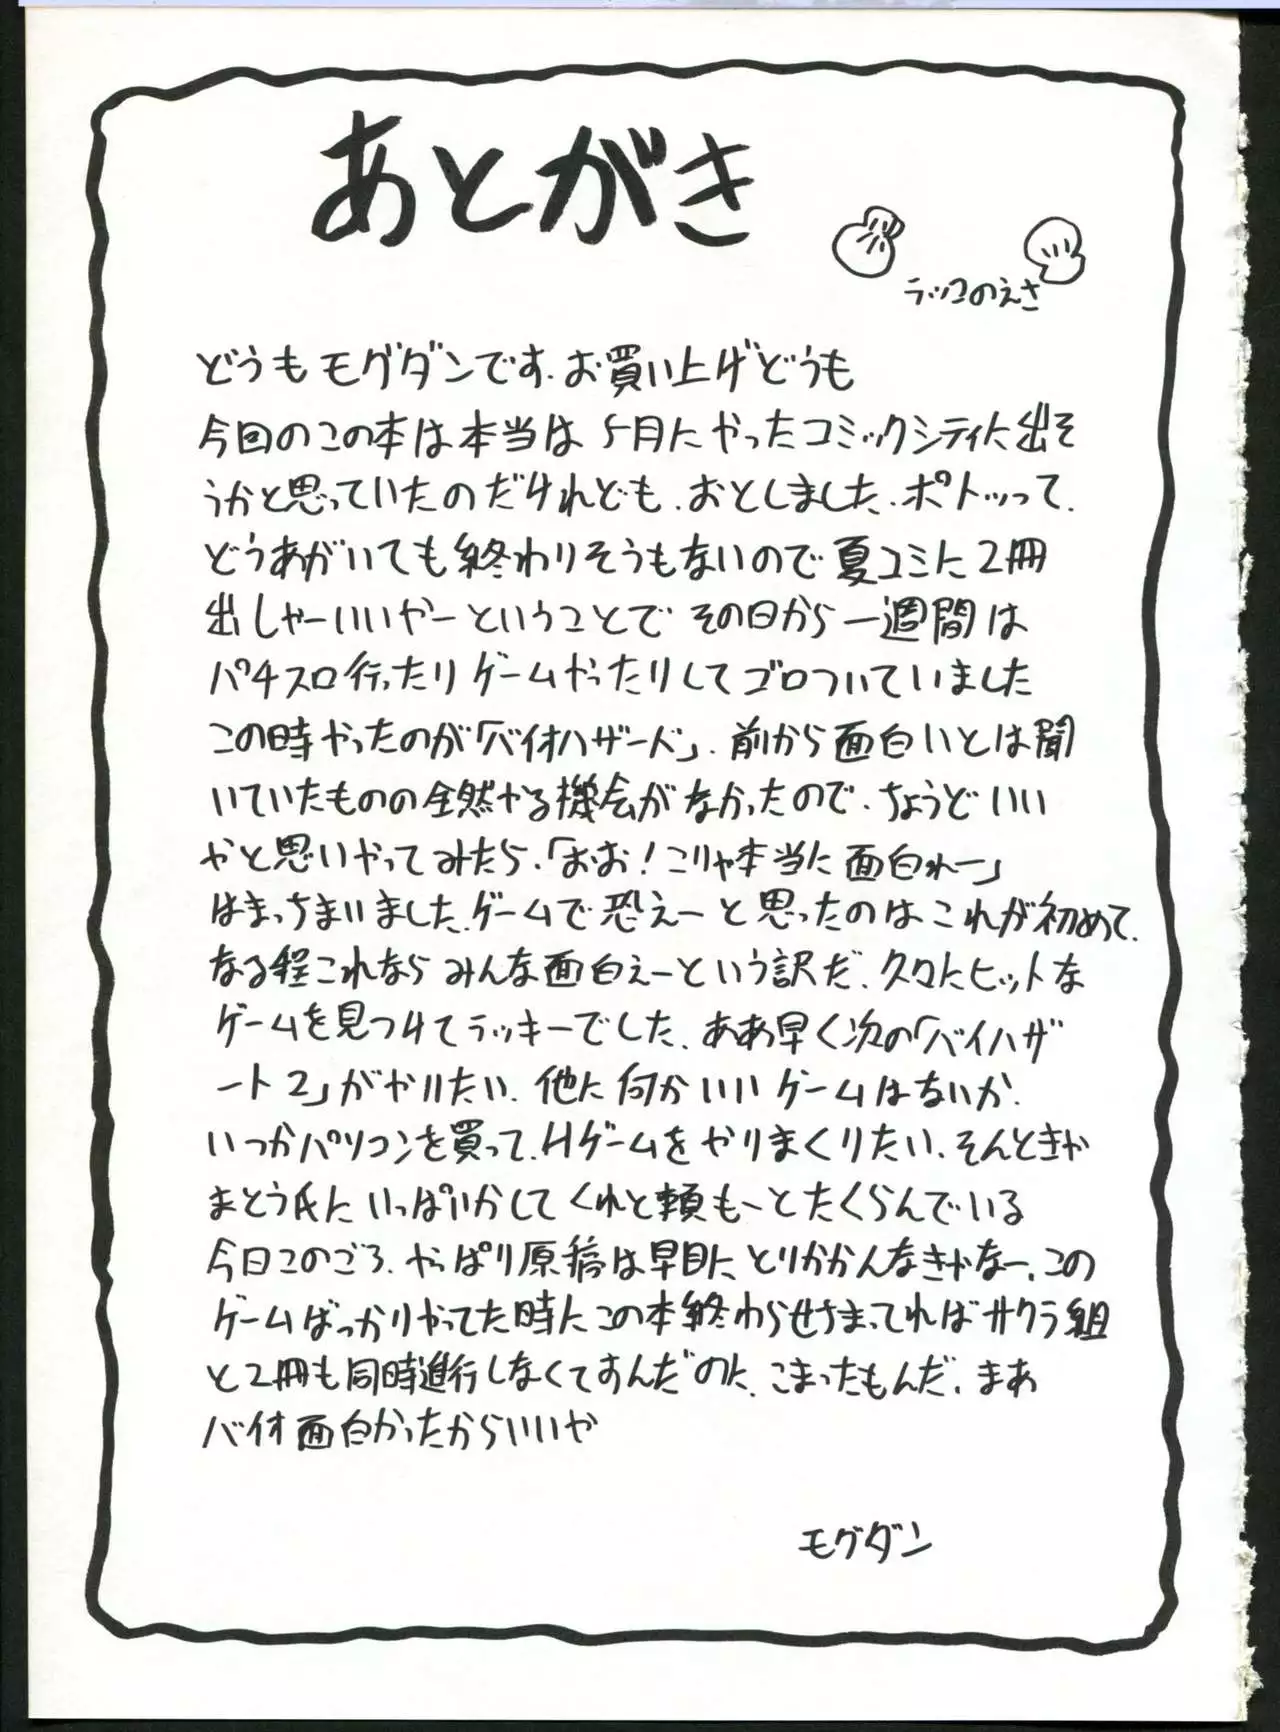 あとがき
ラッコのえさ
どうもモグダンです.お買い上げどうも
今回のこの本は本当は5月にやったコミックシティに出そ
うかと思っていたのだけれども.おとしました.ポトッって.
どうあがいても終わりそうもないので夏コミに2冊
出しゃーいいやーということでその日から一週間は
パチスロ行ったりゲームやったりしてゴロついていました
この時やったのが「バイオハザード」.前から面白いとは聞
いていたものの全然やる機会がなかったので.ちょうどいい
やと思いやってみたら.「おお!こりゃ本当に面白れー」
はまっちまいました.ゲームで恐えーと思ったのはこれが初めて.
なる程これならみんな面白えーという訳だ.久々にヒットな
ゲームを見つけてラッキーでした.ああ早く次の「バイハザ
ード2」がやりたい.他に何かいいゲームはないか.
いつかパソコンを買って.Hゲームをやりまくりたい.そんときゃ
まとう氏にいっぱいかしてくれと頼もーとたくらんでいる
今日このごろ.やっぱり原稿は早目にとりかかんなきゃなー.この
ゲームばっかりやってた時にこの本終わらせちまってればサクラ組
と2冊も同時進行しなくてすんだのに.こまったもんだ.まあ
バイオ面白かったからいいや
モグダン